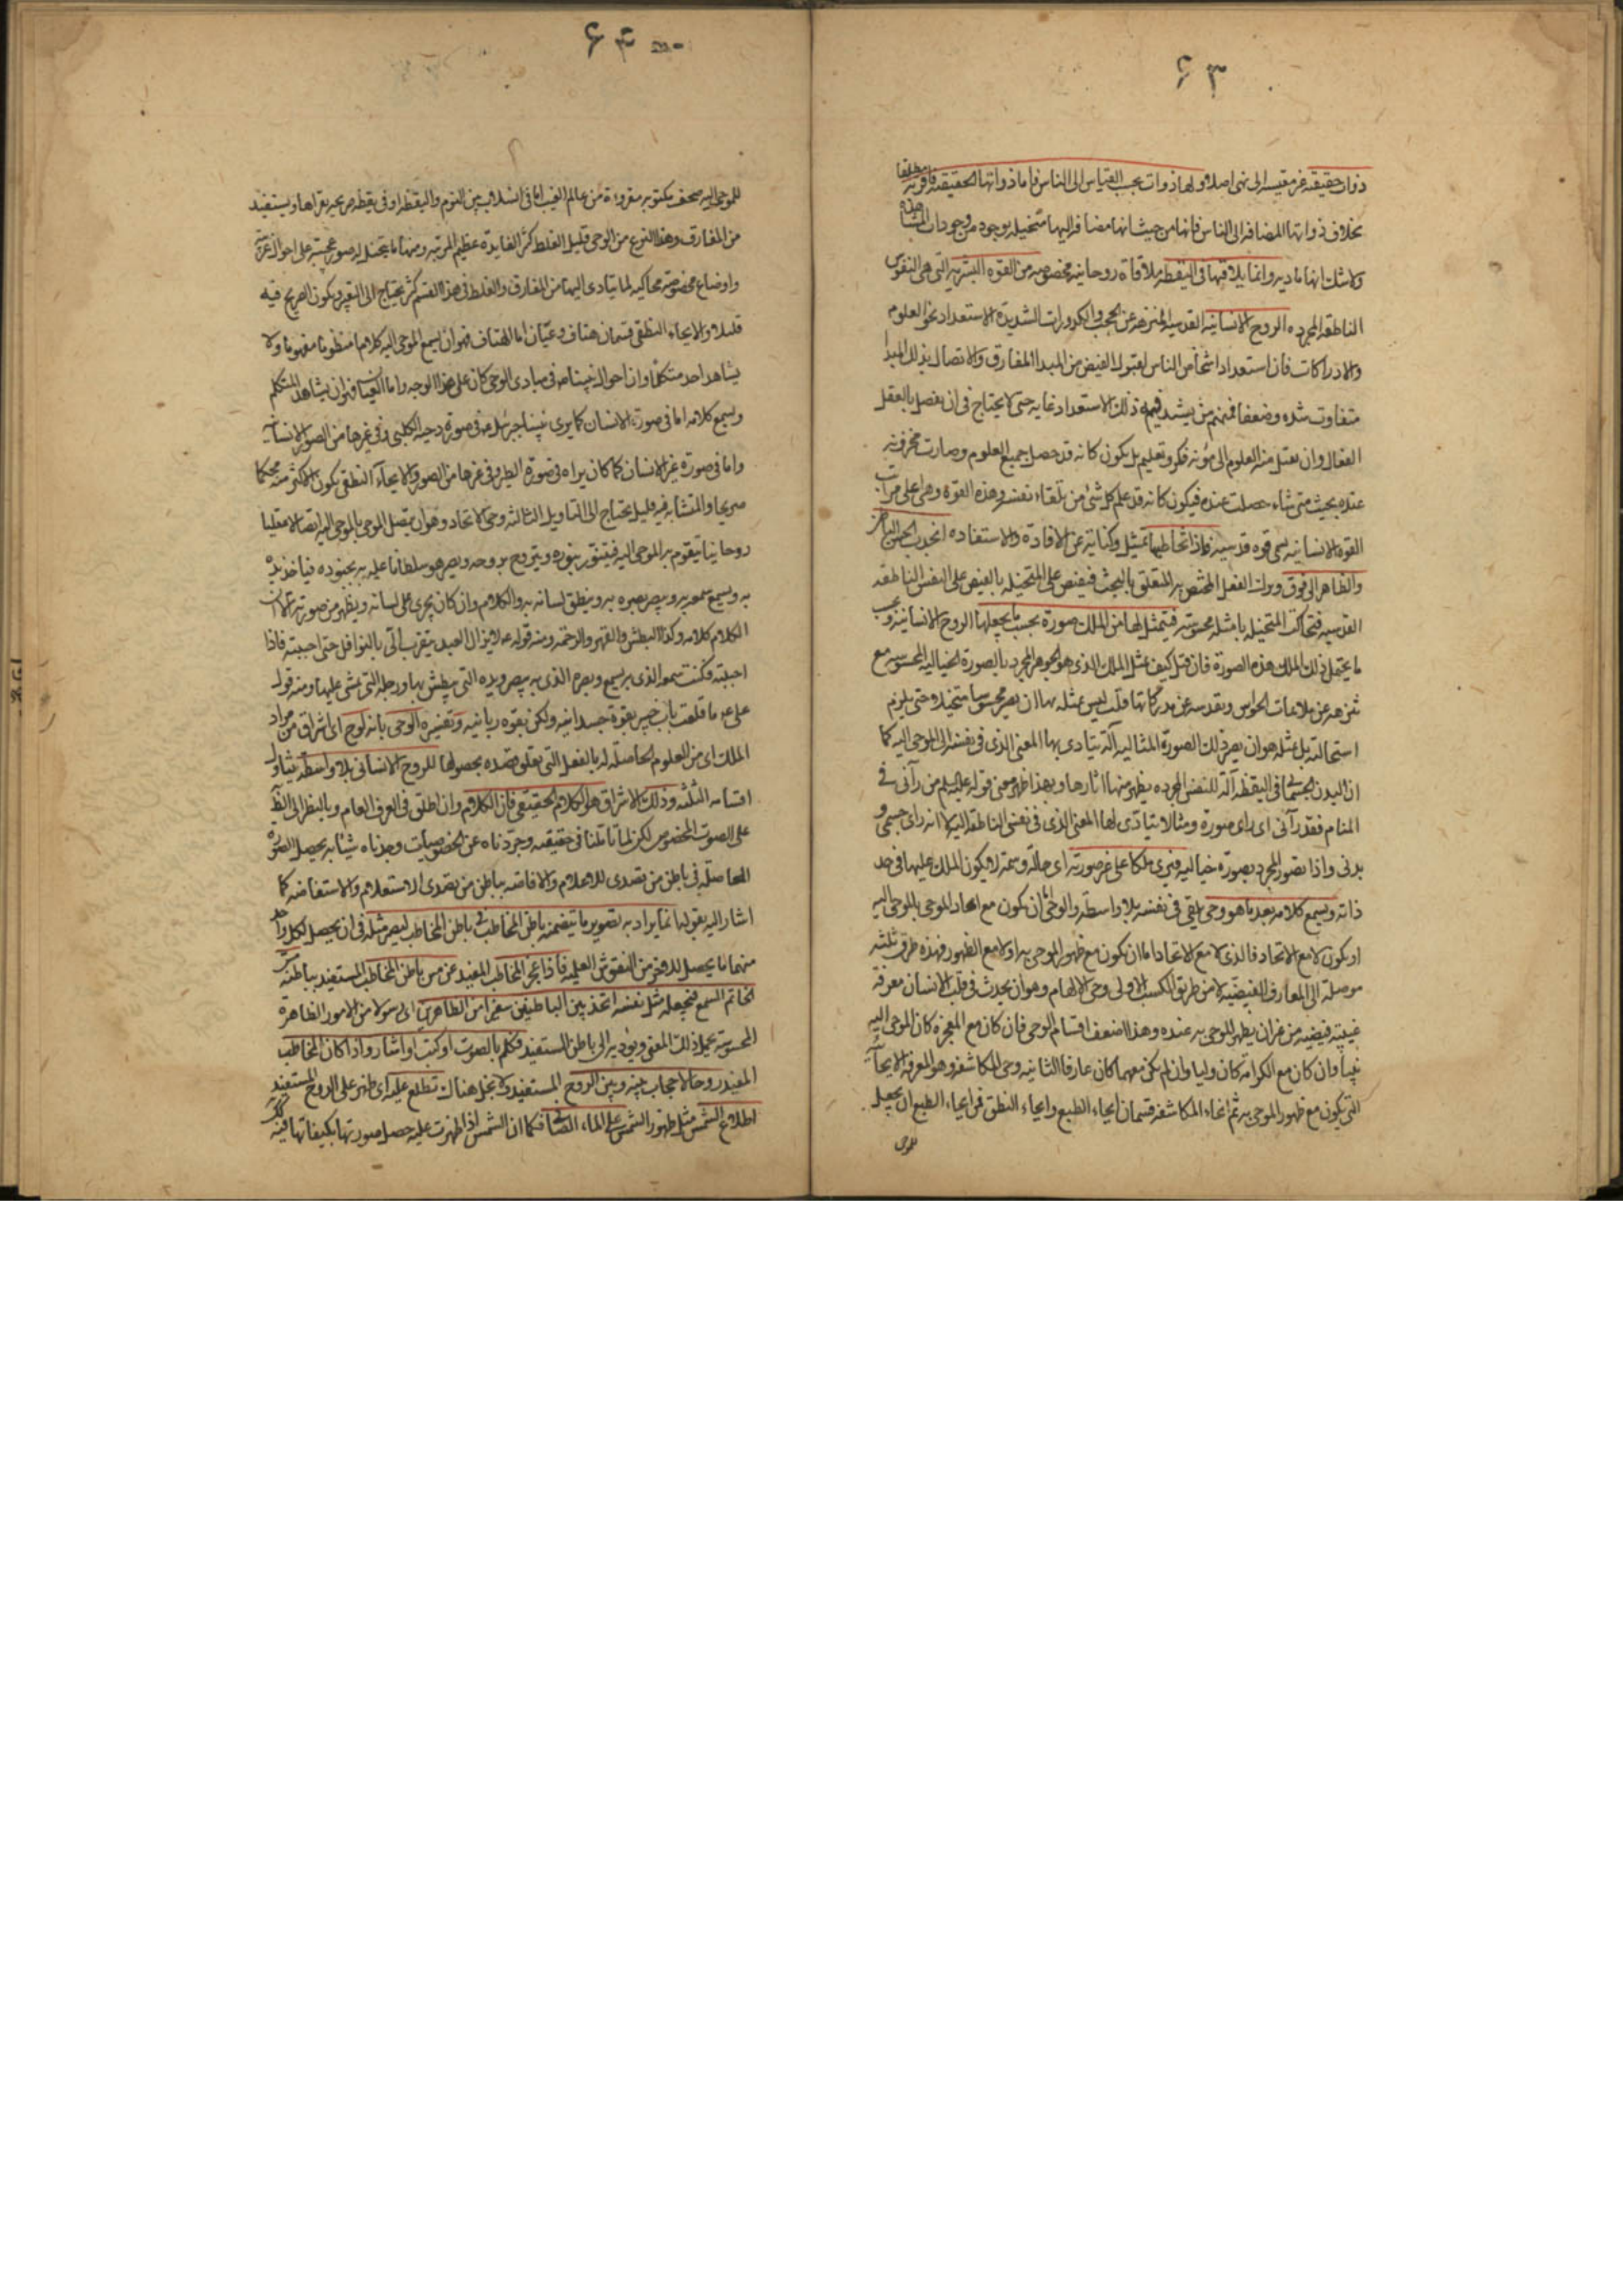 ۶۳
ذوات حقيقيه غير مقيسه الى شئ اصلا ولها ذوات بحسب القياس الى الناس فاما ذواتها الحقيقيه فامريه مطلقا
بخلاف ذواتها المضافه الى الناس فانها من حيث انها مضافه اليها متخيله بوجوه من وجودات
ولا شك انها ماديه وانما يلاقيها فى اليقظه ملاقاة روحانيه مخصوصه من القوه البشريه التى هى النفوس
الناطقه المجرده الروح الانسانيه القدسيه المنزهه عن الحجب والكدورات الشديدة الاستعداد نحو العلوم
والادراكات فان استعداد اشخاص الناس لقبول الفيض من المبدأ المفارق والاتصال بذلك المبدأ
متفاوت شده وضعفا فمنهم من يشتد فيه ذلك الاستعداد غايه حتى لا يحتاج فى ان يتصل بالعقل
الفعال وان يقبل منه العلوم الى مؤنه فكر وتعليم بل يكون كانه قد حصل جميع العلوم وصارت مخزونه
عنده بحيث متى شاء حصلت عنده فيكون كانه قد علم كل شئ من تلقاء نفسه وهذه القوة وهى اعلى مراتب
القوه الانسانيه يسمى قوه قدسيه فاذا تخاطبها تمثيل وكنايه عن الافادة والاستفاده انجذب الحس الباطن
والظاهر الى فوق وترك الفعل المختص به المتعلق بالبحث فيفيض على المتخيله بالفيض على النفس الناطقه
القدسيه فتحاكى المتخيله بامثله محسوسة فيتمثل لها من الملك صورة بحسب ما يحتملها الروح الانسانيه وبحسب
ما يحتمل ذلك الملك هذه الصورة فان قيل كيف يمثل الملك الذى هو الجوهر المجرد بالصورة الخياليه المحسوسه مع
تنزهه عن ملابسات الحواس وتقدسه عن مدركاتها قلت ليس تمثله بها ان يصير محسوسا متخيلا حتى يلزم
استحالته بل تمثله هو ان يصير ذلك الصورة المثاليه آلة يتادى بها المعنى الذى فى نفسه الى الموحى اليه كما
ان البدن الجسمانى فى اليقظه آلة للنفس المجرده يظهر منها آثارها وبهذا ظهر معنى قوله عليه السلم من رآنى فى
المنام فقد رآنى اى راى صورة ومثالا يتادى لها المعنى الذى فى نفسى الناطقه اليه لا انه راى جسمى و
بدنى واذا تصور المجرد بصورة خياليه فيرى ملكا على غير صورته اى حالة وسمة لا يكون الملك عليها فى حد
ذاته ويسمع كلامه بعد ما هو وحى يلقى فى نفسه بلا واسطه والوحى اما ان يكون مع اتحاد الموحى بالموحى اليه
او يكون لا مع الاتحاد فالذى لا مع الاتحاد اما ان يكون مع ظهور الموحى به او لا مع الظهور فهذه طرق ثلثه
موصلة الى المعارف الفيضيه لا من طريق الكسب الاولى وحى الالهام وهو ان يحدث فى قلب الانسان معرفة
غيبية فيضيه من غير ان يظهر الموحى به عنده وهذا اضعف اقسام الوحى فان كان مع المعجزة كان الموحى اليه
نبيا وان كان مع الكرامة كان وليا وان لم يكن معهما كان عارفا الثانيه وحى المكاشفه وهو المعرفة الايحائيه
التى يكون مع ظهور الموحى به ثم انحاء المكاشفه قسمان ايحاء الطبع وايحاء النطق فايحاء الطبع ان يتخيل
للموحى
۶۴
للموحى اليه صحف مكتوبه مقروءة من عالم الغيب اما فى انسلاب بين النوم واليقظه او فى يقظه صريحه يقراها ويستفيد
من المفارق وهذا النوع من الوحى قليل الغلط كثير الفايدة عظيم المرتبه ومنها ما يتخيل له صور عجيبه على احوال غريبة
واوضاع مخصوصه محاكيه لما يتادى اليها من المفارق والغلط فى هذا القسم كثير يحتاج الى التعبير ويكون الصريح فيه
قليلا والايحاء النطقى قسمان هتاف وعيان اما الهتاف فهو ان يسمع الموحى اليه كلاما منظوما مفهوما ولا
يشاهد احد متكلما وان احوال نبينا ص فى مبادى الوحى كان على هذا الوجه واما العيان فهو ان يشاهد المتكلم
ويسمع كلامه اما فى صورة الانسان كما يرى نبينا جبرئيل ع فى صورة دحية الكلبى وفى غيرها من الصور الانسانية
واما فى صورة غير الانسان كما كان يراه فى صورة الطير وفى غيرها من الصور والايحاء النطقى يكون الاكثر منه محكما
صريحا والمتشابه فيه قليل يحتاج الى التاويل الثالثه وحى الاتحاد وهو ان يتصل الموحى بالموحى اليه اتصالا عقليا
روحانيا يتقوم به الموحى اليه فيتنور بنوره ويتروح بروحه ويصير هو سلطانا عليه به بجنوده فياخذ بيده
به ويسمع سمعه به ويبصر بصره به وينطق لسانه به والكلام وان كان يجرى على لسانه ويظهر من صورته الا ان
الكلام كلامه وكذا البطش والقهر والرحمة ومنه قوله ع لا يزال العبد يتقرب الى بالنوافل حتى احببته فاذا
احببته فكنت سمعه الذى به يسمع وبصره الذى به يبصر ويده التى يبطش بها ورجله التى يمشى عليها ومنه قول
على ع ما قلعت باب خيبر بقوة جسدانيه ولكن بقوه ربانيه وتفسيره الوحى بانه لوح اى اشراق من مراد
الملك اى من العلوم الحاصله له بالفعل التى تعلق قصده بحصولها للروح الانسانى بلا واسطه يتناول
اقسامه الثلثه وذلك الاشراق هو الكلام الحقيقى فان الكلام وان اطلق فى العرف العام وبالنظر الى الظاهر
على الصوت المخصوص لكن لما تاملنا فى حقيقته وجردناه عن الخصوصيات وجدناه شيئا به يحصل الصورة
الحاصلة فى باطن من تصدى للاعلام والافاضه بباطن من تصدى الاستعلام والاستفاضه كما
اشار اليه بقوله انما يراد به تصوير ما يتضمنه باطن المخاطب فى باطن المخاطب ليصير مثله فى ان يحصل لكل واحد
منهما ما يحصل للاخر من النقوش العلميه فاذا عجز المخاطب المفيد عن مس باطن المخاطب المستفيد بباطنه مس
الخاتم الشمع فيجعله مثل نفسه اتخذ بين الباطنين سفيرا من الظاهرين اى رسولا من الامور الظاهرة
المحسوسة يحمل ذلك المعنى ويؤديه الى باطن المستفيد فكلم بالصوت او كتب او اشار واذا كان المخاطب
المفيد روحا لا حجاب بينه وبين الروح المستفيد ولا بخل هناك تطلع عليه اى ظهر على الروح المستفيد
اطلاع الشمس مثل ظهور الشمس على الماء الصافى فكما ان الشمس اذا ظهرت عليه حصل صورتها بكيفياتها فيه